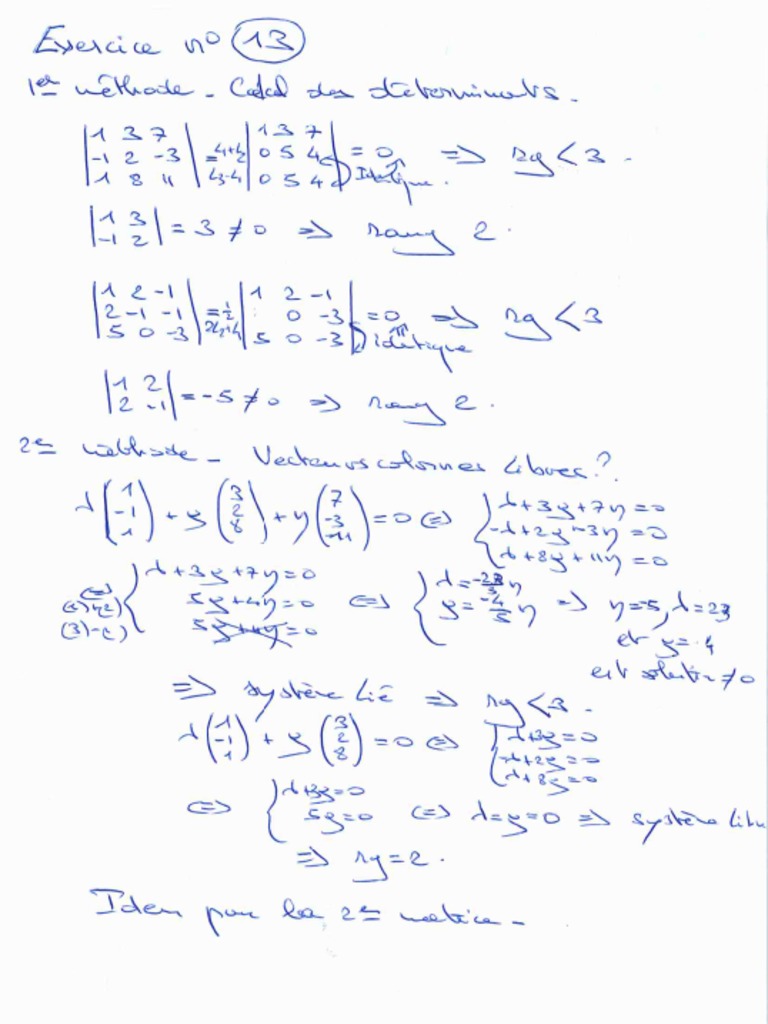 Exercice n° 13
1er méthode - Calcul des déterminants.
|1 3 7| |1 3 7|
|-1 2 -3| = |0 5 4| = 0 ⇒ rg < 3.
|1 8 11| |0 5 4| Identique.
|1 3|
|-1 2| = 3 ≠ 0 ⇒ rang 2.
|1 2 -1| |1 2 -1|
|2 -1 -1| = | 0 -3| = 0 ⇒ rg < 3
|5 0 -3| |5 0 -3| identique
|1 2|
|2 -1| = -5 ≠ 0 ⇒ rang 2.
2e méthode - Vecteurs colonnes libres ?
λ(1 -1 1) + y(3 2 8) + η(7 -3 -11) = 0 ⇔ { λ+3y+7η=0
-λ+2y-3η=0
λ+8y+11η=0
⇔ { λ+3y+7η=0
5y+4η=0 ⇔ { λ=-23/5 η
y=-4/5 η ⇒ η=-5, λ=23
(3)-(1) 5y+4η=0
et y=4
est solution ≠0
⇒ système lié ⇒ rg<3.
λ(1 -1 1) + y(3 2 8) = 0 ⇔ { λ+3y=0
-λ+2y=0
λ+8y=0
⇔ { λ+3y=0
5y=0 ⇔ λ=y=0 ⇒ système libre
⇒ rg=2.
Idem pour la 2e matrice -